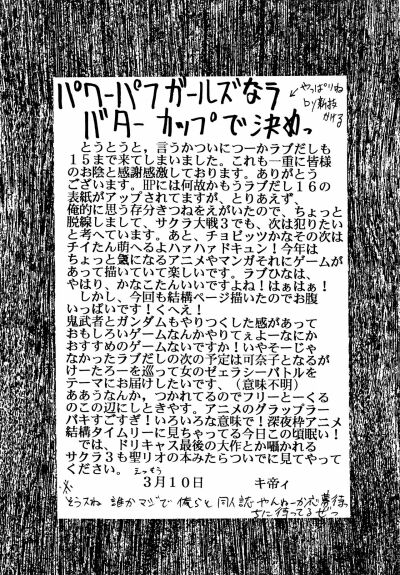 パワーパフガールズなら
バターカップで決めっ
やっぱりね
とうとうと，言うかついにつーかラブだしも
１５まで来てしまいました。これも一重に皆様
のお陰と感謝感激しております。ありがとう
ございます。HPには何故かもうラブだし１６の
表紙がアップされてますが、とりあえず、
俺的に思う存分きつねをえがいたので、ちょっと
脱線しまして、サクラ大戦３でも、次は犯りたい
と考えています。あと、チョビッツかなその次は
チイたん萌へるよハァハァドキュン！今年は
ちょっと気になるアニメやマンガそれにゲームが
あって描いていて楽しいです。ラブひなは、
やはり、かなこたんいいですよね！はぁはぁ！
しかし、今回も結構ページ描いたのでお腹
いっぱいです！くへえ！
鬼武者とガンダムもやりつくした感があって
おもしろいゲームなんかやりてぇよーなにか
おすすめのゲームないですか！いやそーじゃ
なかったラブだしの次の予定は可奈子となるが
けーたろーを巡って女のゼェラシーバトルを
テーマにお届けしたいです、（意味不明）
ああうなんか，つかれてるのでフリーとーくる
のこの辺にしときやす。アニメのグラップラー
バキすごすぎ！いろいろな意味で！深夜枠アニメ
結構タイムリーに見ちゃってる今日この頃眠い！
では、ドリキャス最後の大作とか囁かれる
サクラ３も聖リオの本みたらついでに見てやって
ください。
３月１０日　キ帝ィ
※そうスね 誰かマジで俺らと同人誌やんねーか